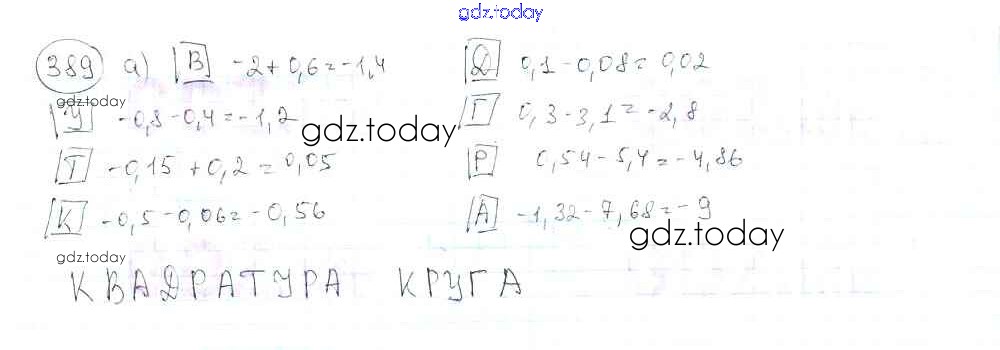 gdz.today
389 а) В -2 + 0,6 = -1,4
Д 0,1 - 0,08 = 0,02
gdz.today
У -0,8 - 0,4 = -1,2
Г 0,3 - 3,1 = -2,8
gdz.today
Т -0,15 + 0,2 = 0,05
Р 0,54 - 5,4 = -4,86
К -0,5 - 0,06 = -0,56
А -1,32 - 7,68 = -9
gdz.today
gdz.today
КВАДРАТУРА КРУГА